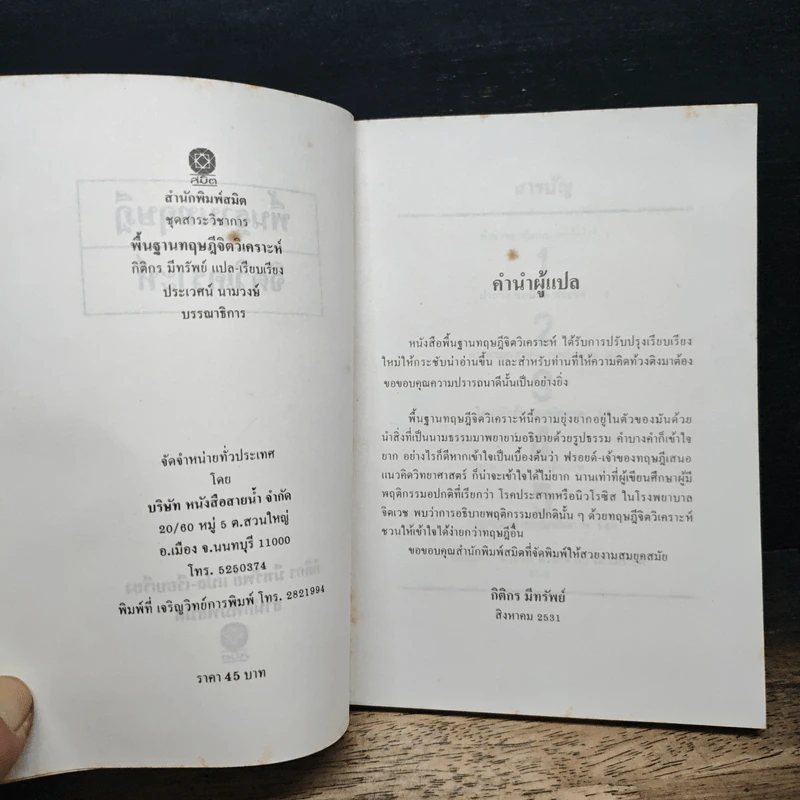 สมิต
สำนักพิมพ์สมิต
ชุดสาระวิชาการ
พื้นฐานทฤษฎีจิตวิเคราะห์
กิติกร มีทรัพย์ แปล-เรียบเรียง
ประเวศน์ นามวงษ์
บรรณาธิการ
จัดจำหน่ายทั่วประเทศ
โดย
บริษัท หนังสือสายน้ำ จำกัด
20/60 หมู่ 5 ต.สวนใหญ่
อ.เมือง จ.นนทบุรี 11000
โทร. 5250374
พิมพ์ที่ เจริญวิทย์การพิมพ์ โทร. 2821994
ราคา 45 บาท
คำนำผู้แปล
หนังสือพื้นฐานทฤษฎีจิตวิเคราะห์ ได้รับการปรับปรุงเรียบเรียง
ใหม่ให้กระชับน่าอ่านขึ้น และสำหรับท่านที่ให้ความคิดท้วงติงมาต้อง
ขอขอบคุณความปรารถนาดีนั้นเป็นอย่างยิ่ง
พื้นฐานทฤษฎีจิตวิเคราะห์นี้ความยุ่งยากอยู่ในตัวของมันด้วย
นำสิ่งที่เป็นนามธรรมมาพยายามอธิบายด้วยรูปธรรม คำบางคำก็เข้าใจ
ยาก อย่างไรก็ดีหากเข้าใจเป็นเบื้องต้นว่า ฟรอยด์-เจ้าของทฤษฎีเสนอ
แนวคิดวิทยาศาสตร์ ก็น่าจะเข้าใจได้ไม่ยาก นานเท่าที่ผู้เขียนศึกษาผู้มี
พฤติกรรมอปกติที่เรียกว่า โรคประสาทหรือนิวโรซิส ในโรงพยาบาล
จิตเวช พบว่าการอธิบายพฤติกรรมอปกตินั้น ๆ ด้วยทฤษฎีจิตวิเคราะห์
ชวนให้เข้าใจได้ง่ายกว่าทฤษฎีอื่น
ขอขอบคุณสำนักพิมพ์สมิตที่จัดพิมพ์ให้สวยงามสมยุคสมัย
กิติกร มีทรัพย์
สิงหาคม 2531